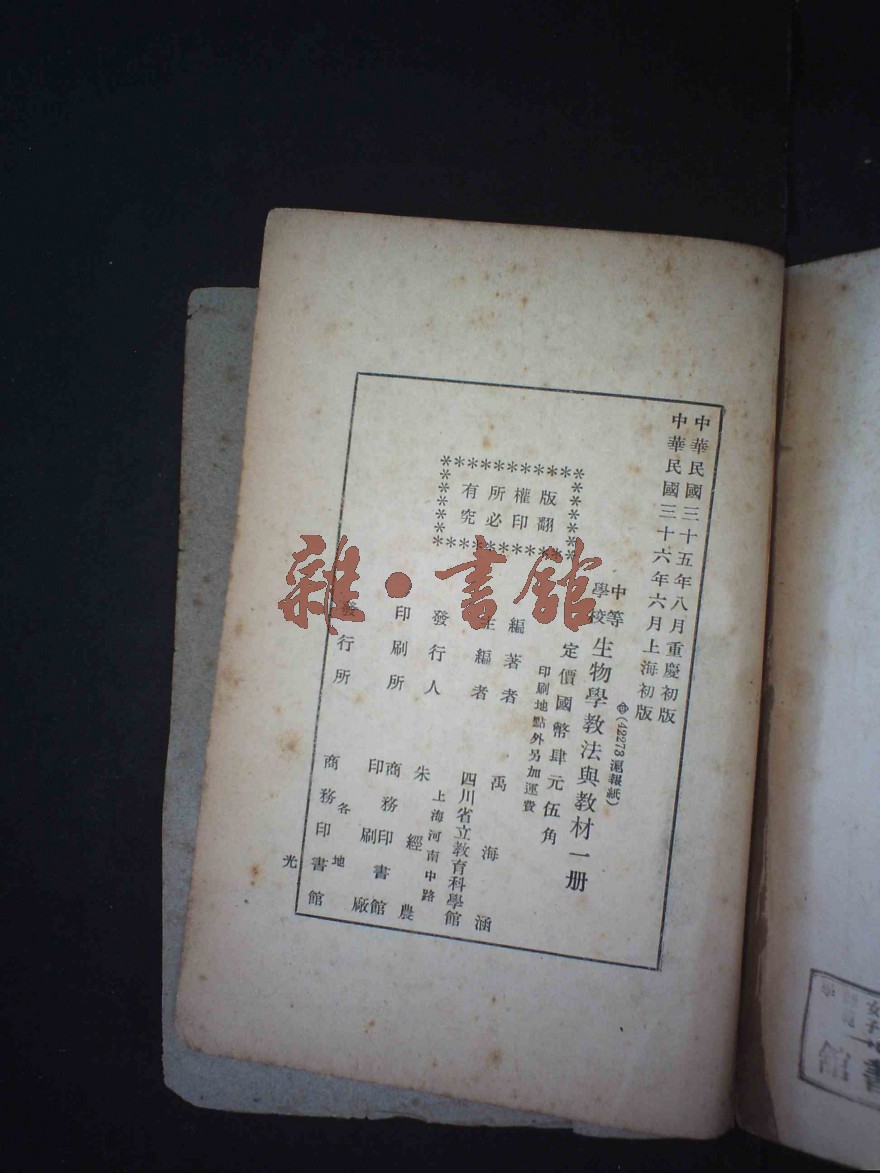 中華民國三十五年八月重慶初版
中華民國三十六年六月上海初版
(42273滬報紙)
中等學校生物學教法與教材一册
定價國幣肆元伍角
印刷地點外另加運費
版權所有
翻印必究
編著者 禹海涵
主編者 四川省立教育科學館
發行人 朱經農
上海河南中路
印刷所 商務印書館印刷廠
發行所 商務印書館
各地
光
雜·書館
書
館